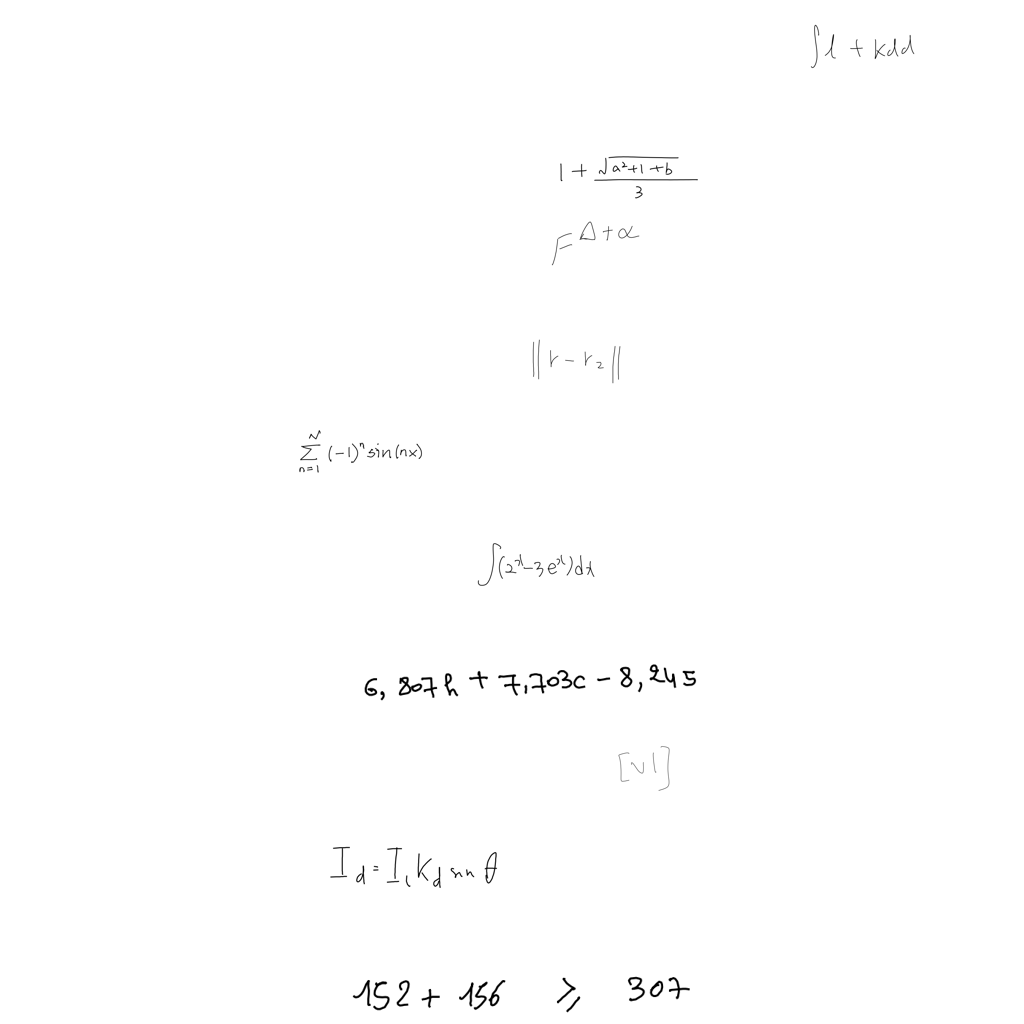 ∫l + kdd
1 + √(a²+1+b)/3
F^(Δ+α)
||r - r₂||
∑_{n=1}^{N} (-1)ⁿ sin(nx)
∫(2ˣ-3eˣ)dx
6,807h + 7,703c - 8,245
[v1]
I_d = I_i K_d sin θ
152 + 156 ⩾ 307